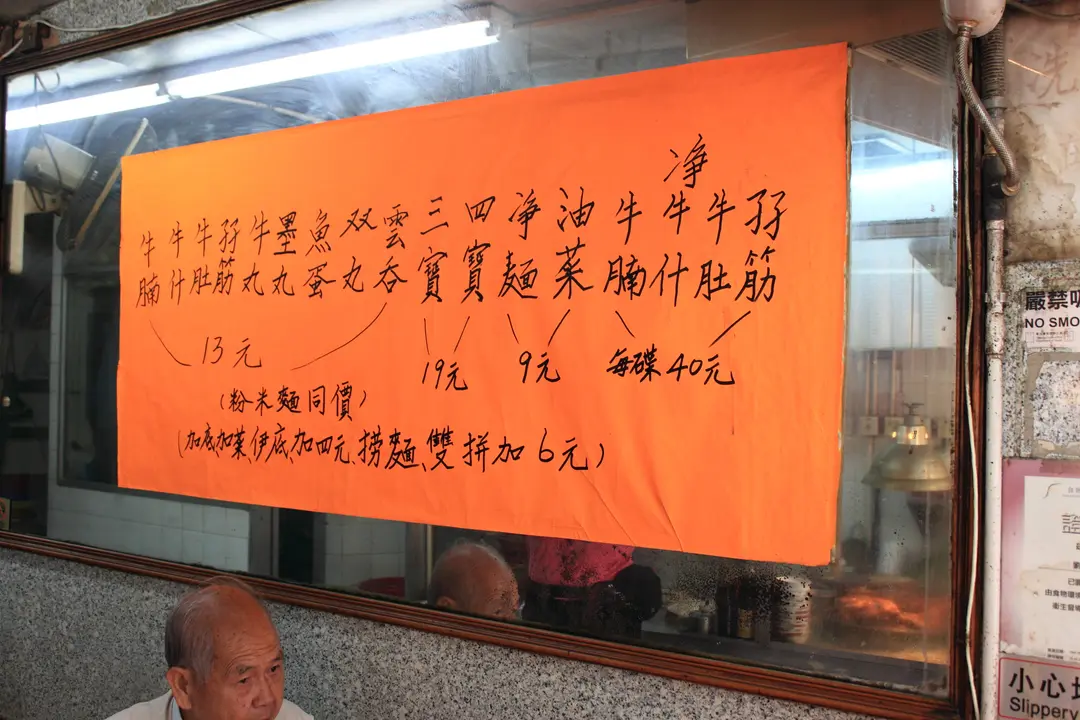 牛腩
牛什
牛肚
孖筋
牛丸
墨丸
魚蛋
双丸
雲吞
13元
三寶
四寶
19元
净麵
油菜
9元
净
牛腩
牛什
牛肚
孖筋
每碟40元
(粉米麵同價)
(加底、加菜、伊底、加四元、撈麵、雙拼加6元)
洗
嚴禁
NO SMO
證
由食物環
小心
Slippery